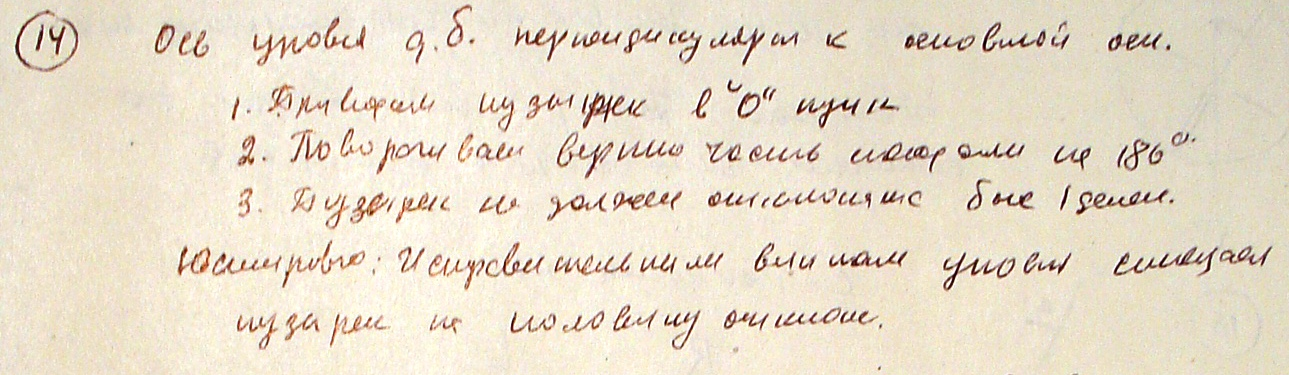 (14) Ось уровня д.б. перпендикулярн к основной оси.
1. Приводим пузырек в "О" пункт
2. Поворачиваем верхню часть на 180°.
3. Пузырек не должен отклонятьс бол 1 делен.
Юстировка: Исправительными винтам уровня смещаем
пузырек на половину отклон.